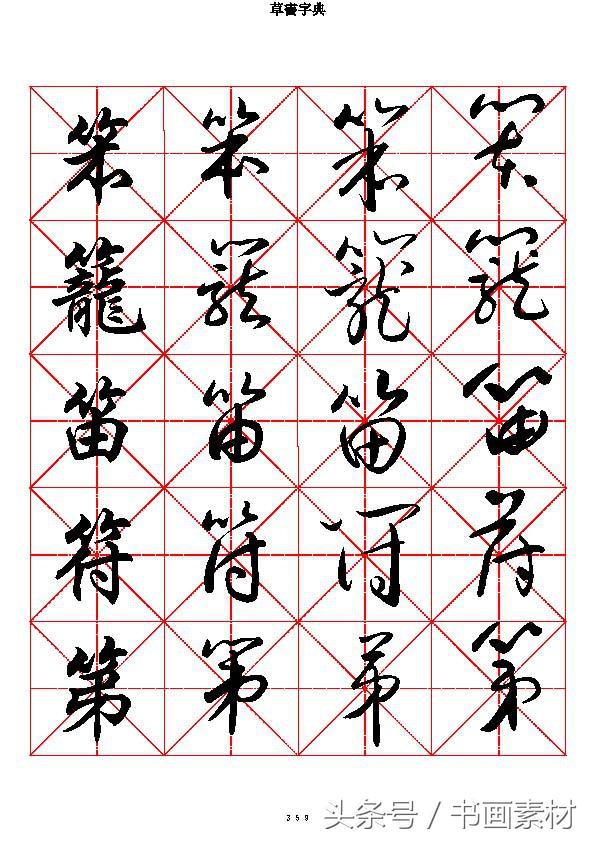 草書字典
笨 笨 笨 笨
籠 籠 籠 籠
笛 笛 笛 笛
符 符 符 符
第 第 第 第
359
头条号 / 书画素材